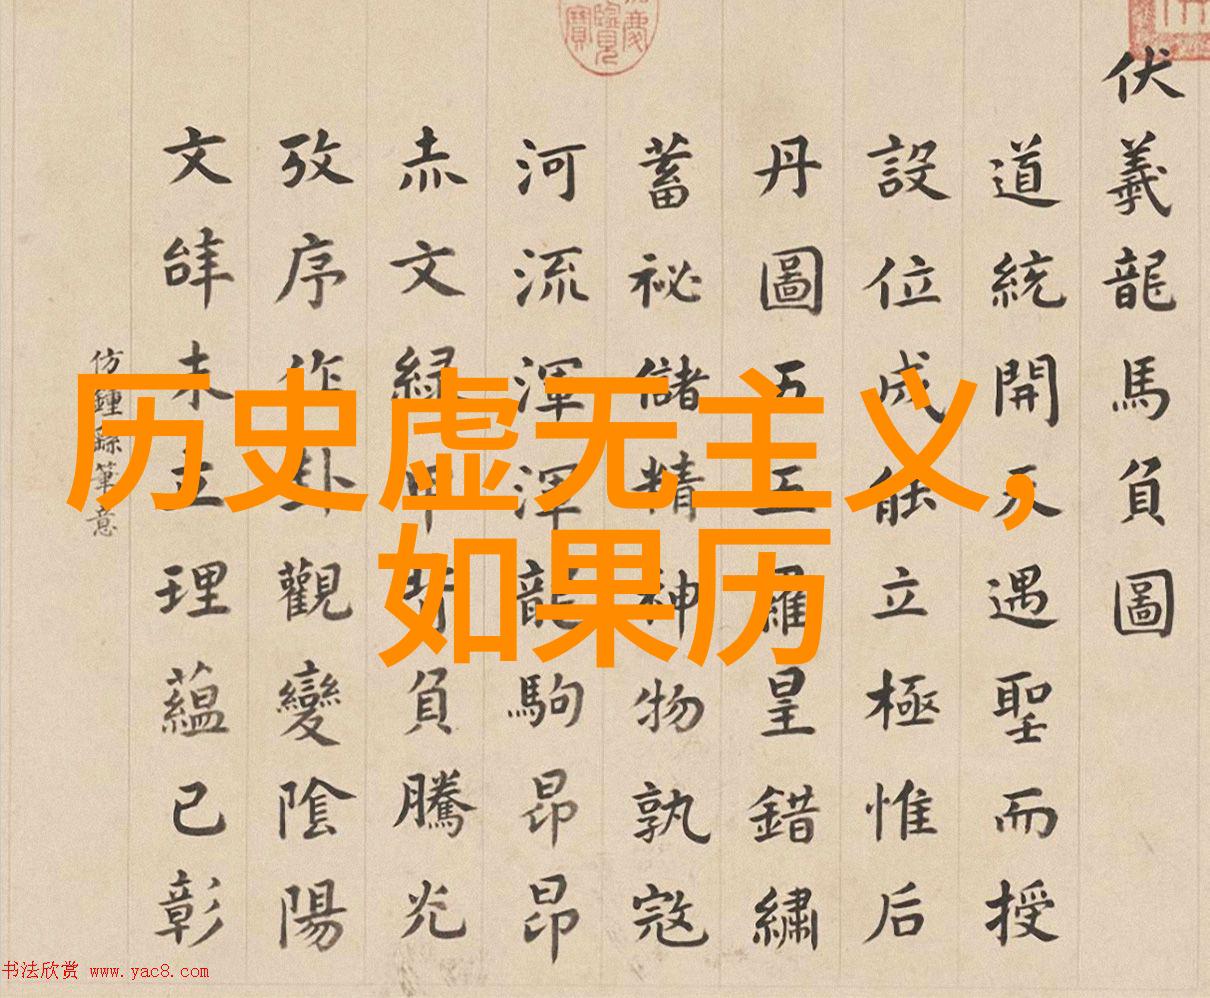 伏羲龍馬負圖
道統開天遇聖而授
設位成能立極惟后
丹圖五三羅皇錯繡
蓄祕儲精神物孰寇
河流渾渾龍駒昂昂
赤文緑甲背負騰光
攷序作卦觀變陰陽
文辞未立理蘊已彰
仿鍾繇筆意
历史虚无主义,
如果历
书法欣赏 www.yac8.com